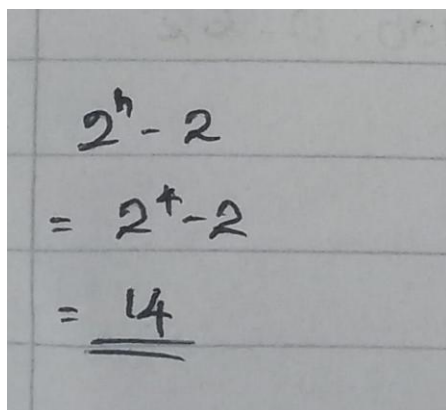 2ⁿ - 2
= 2⁴ - 2
= 14